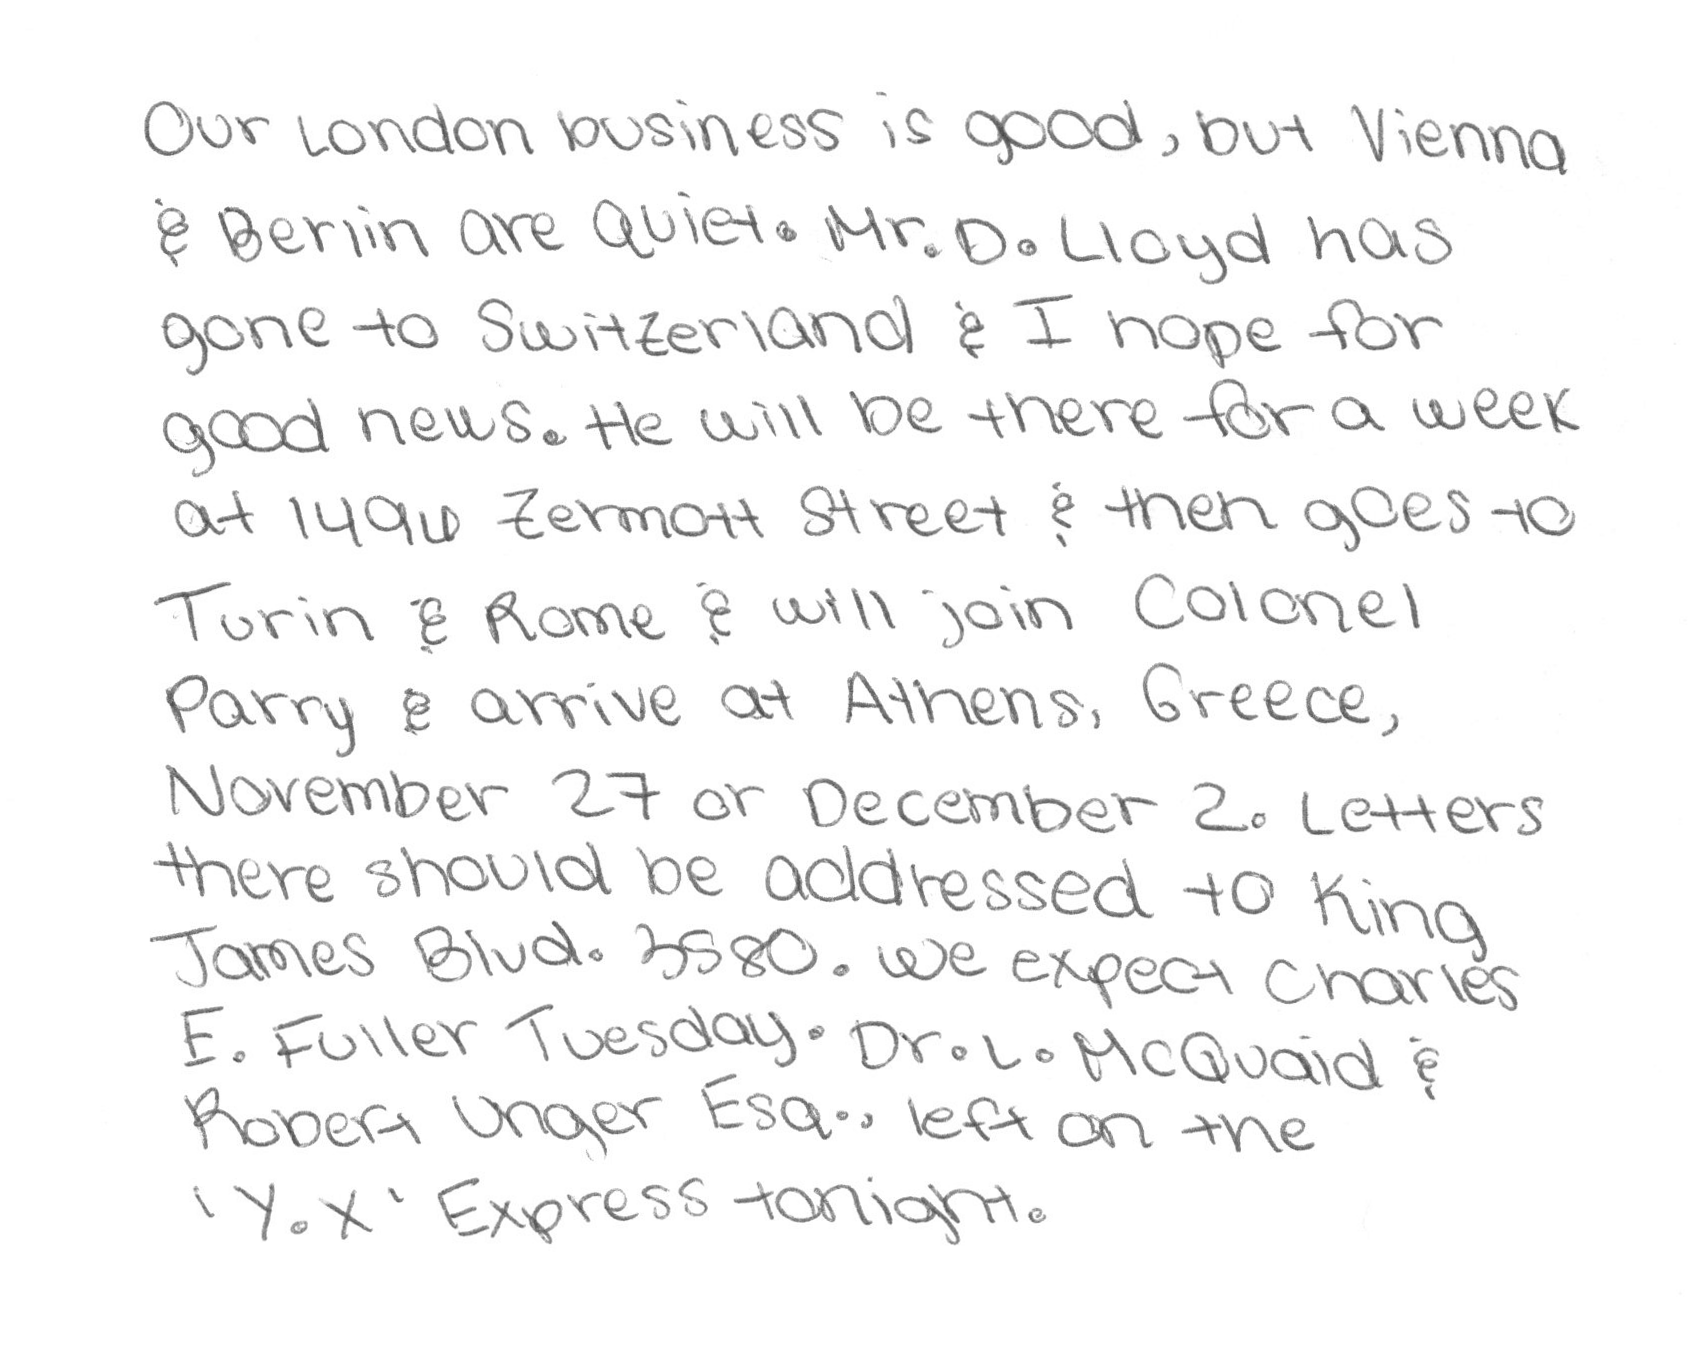 Our London business is good, but Vienna
& Berlin are quiet. Mr. D. Lloyd has
gone to Switzerland & I hope for
good news. He will be there for a week
at 1496 Zermott Street & then goes to
Turin & Rome & will join Colonel
Parry & arrive at Athens, Greece,
November 27 or December 2. Letters
there should be addressed to King
James Blvd. 3580. We expect Charles
E. Fuller Tuesday. Dr. L. McQuaid &
Robert Unger Esq., left on the
'Y.X' Express tonight.